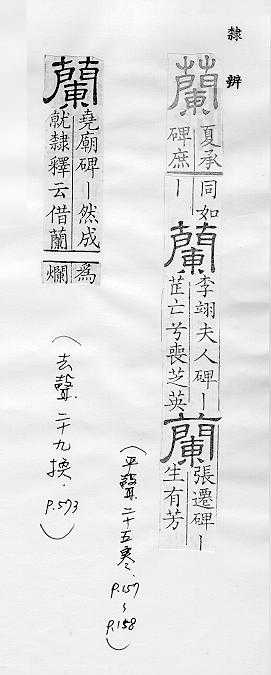 隸辨
蘭
夏承碑庶ー
同如
蘭
李翊夫人碑ー
芷亡兮喪芝英
蘭
張遷碑ー
生有芳
(平聲.二十五寒. P.157~P.158)
蘭
堯廟碑ー然成
就隸釋云借蘭
為爛
(去聲.二十九換. P.573)